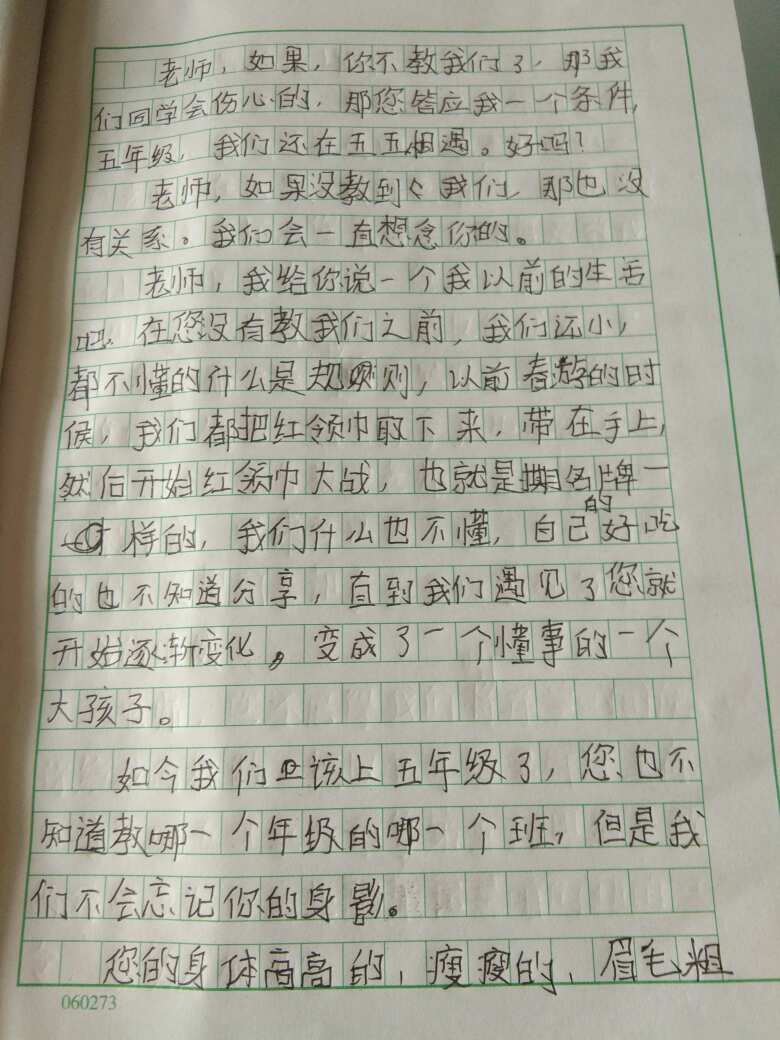 老师，如果，你不教我们了，那我
们同学会伤心的，那您答应我一个条件，
五年级，我们还在五五相遇。好吗？
老师，如果没教到我们，那也没
有关系。我们会一直想念你的。
老师，我给你说一个我以前的生活
吧，在您没有教我们之前，我们还小，
都不懂的什么是规则，以前春游的时
候，我们都把红领巾取下来，带在手上，
然后开始红领巾大战，也就是撕名牌一
样的，我们什么也不懂，自己的好吃
的也不知道分享，直到我们遇见了您就
开始逐渐变化，变成了一个懂事的一个
大孩子。
如今我们应该上五年级了，您也不
知道教哪一个年级的哪一个班，但是我
们不会忘记你的身影。
您的身体高高的，瘦瘦的，眉毛粗
060273